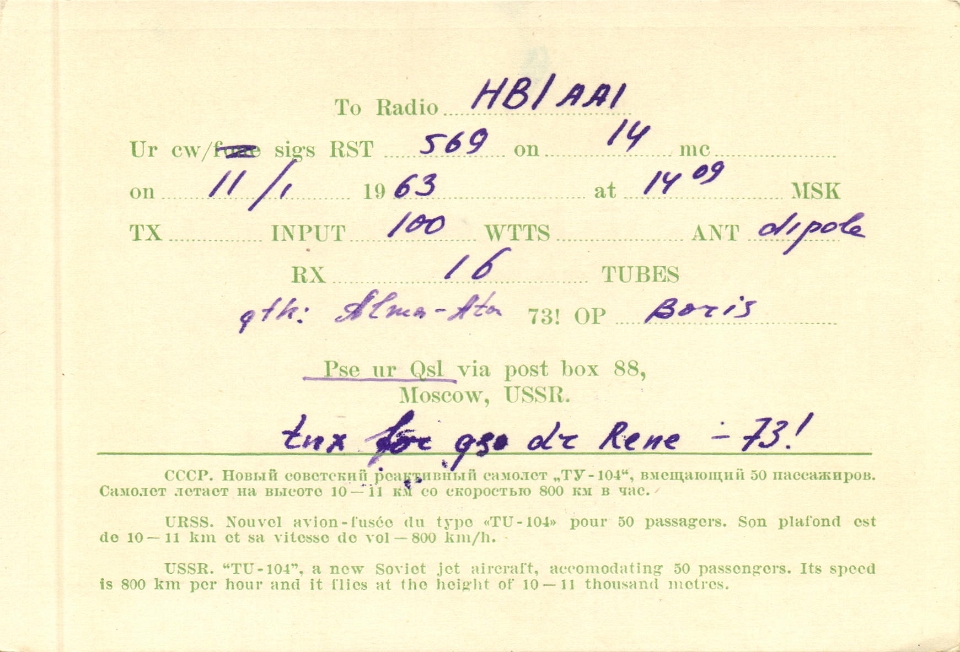 To Radio HB1AAI
Ur cw/fone sigs RST 569 on 14 mc
on 11/1 1963 at 14 09 MSK
TX INPUT 100 WTTS ANT dipole
RX 16 TUBES
qth: Alma-Ata 73! OP Boris
Pse ur Qsl via post box 88,
Moscow, USSR.
tnx for qso dr Rene - 73!
СССР. Новый советский реактивный самолет „ТУ-104“, вмещающий 50 пассажиров.
Самолет летает на высоте 10—11 км со скоростью 800 км в час.
URSS. Nouvel avion-fusée du type «TU-104» pour 50 passagers. Son plafond est
de 10—11 km et sa vitesse de vol—800 km/h.
USSR. “TU-104”, a new Soviet jet aircraft, accomodating 50 passengers. Its speed
is 800 km per hour and it flies at the height of 10—11 thousand metres.